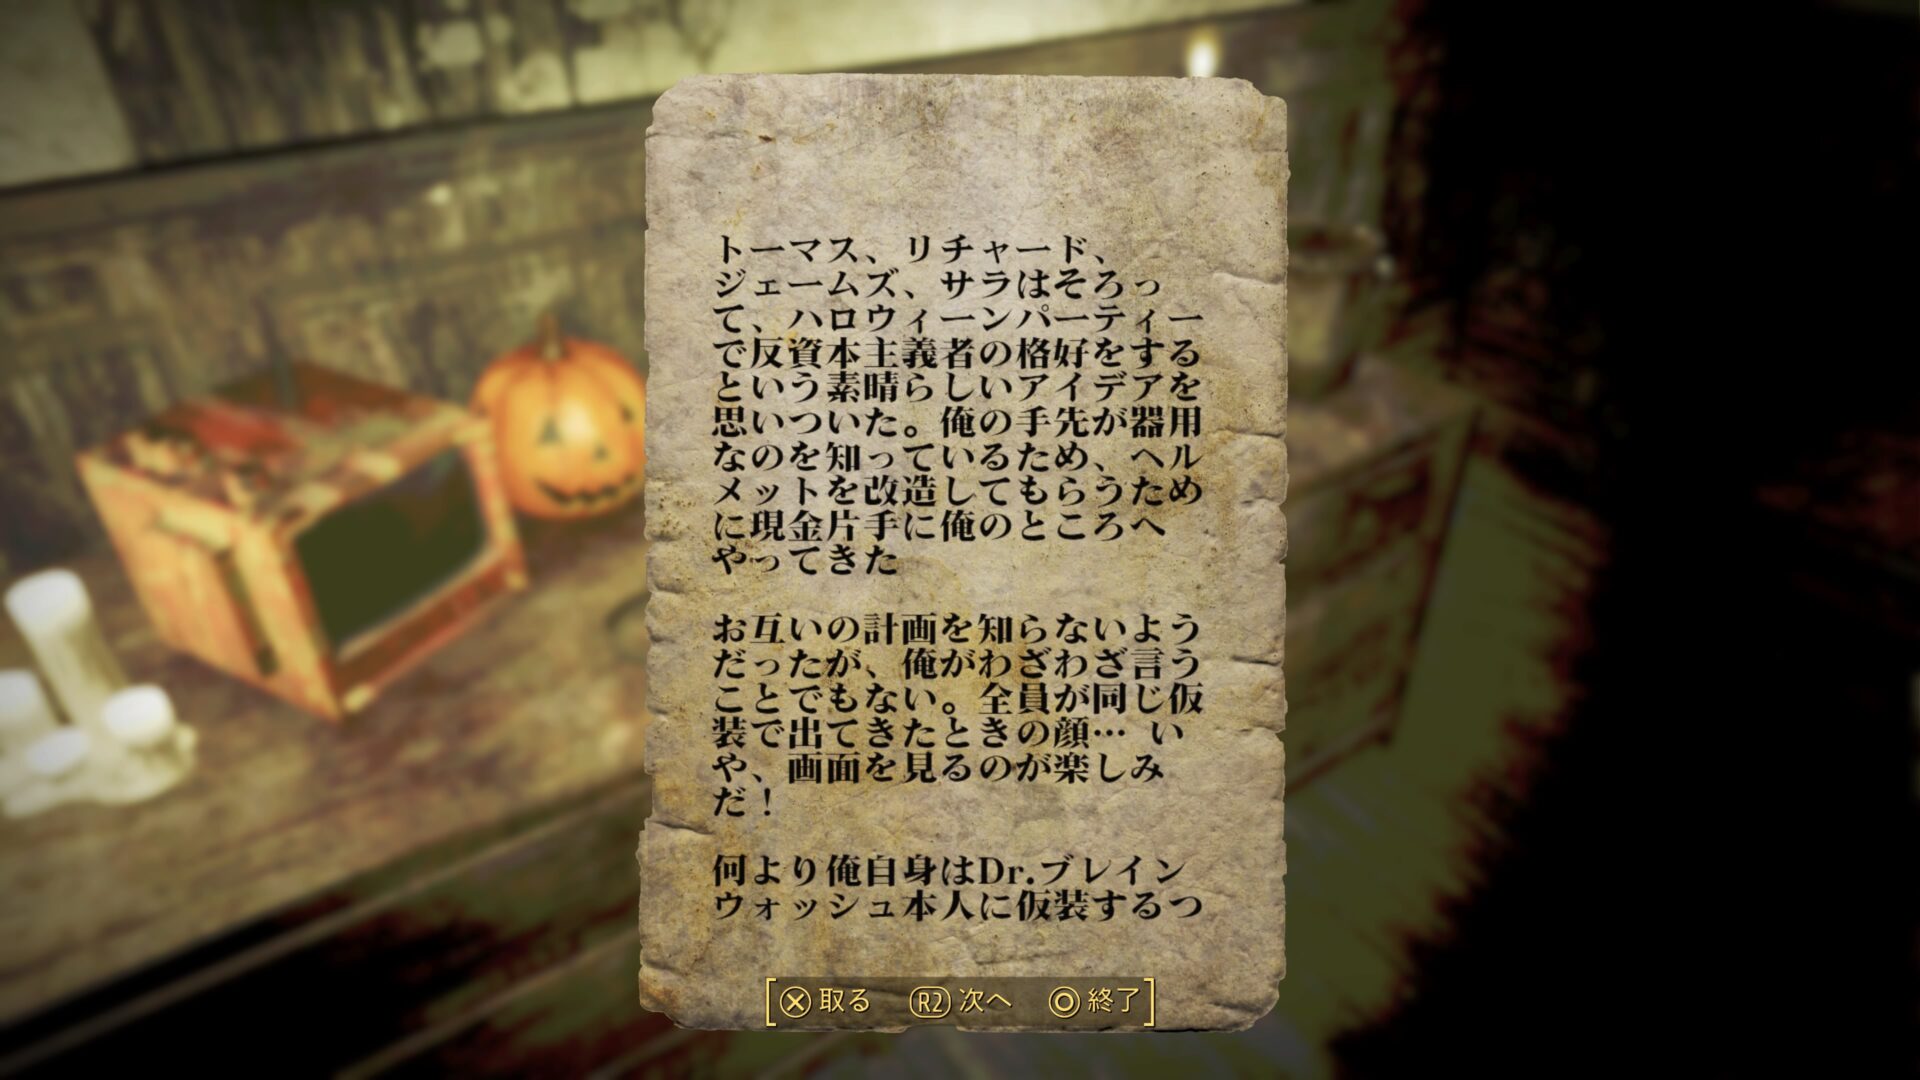 トーマス、リチャード、
ジェームズ、サラはそろっ
て、ハロウィーンパーティー
で反資本主義者の格好をする
という素晴らしいアイデアを
思いついた。俺の手先が器用
なのを知っているため、ヘル
メットを改造してもらうため
に現金片手に俺のところへ
やってきた
お互いの計画を知らないよう
だったが、俺がわざわざ言う
ことでもない。全員が同じ仮
装で出てきたときの顔… い
や、画面を見るのが楽しみ
だ！
何より俺自身はDr.ブレイン
ウォッシュ本人に仮装するつ
取る R2 次へ 終了